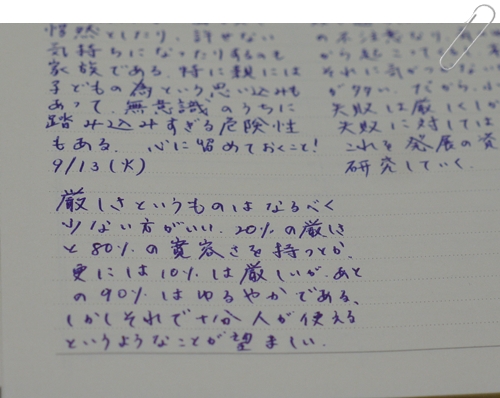 惜然としたり、許せない
気持ちになったりするのも
家族である。特に親には
子どもの為という思い込みも
あって、無意識のうちに
踏み込みすぎる危険性
もある。心に留めておくこと!
9/13(火)
厳しさというものはなるべく
少ない方がいい。20%の厳しさ
と80%の寛容さを持つとか、
更には10%は厳しいが、あと
の90%はゆるやかである、
しかしそれで十分人が使える
というようなことが望ましい。
の不注意なり、
から起こ
それに気がつかな
が多い。だから、小
失敗は厳しくし
失敗に対しては
これを発展の資
研究していく。